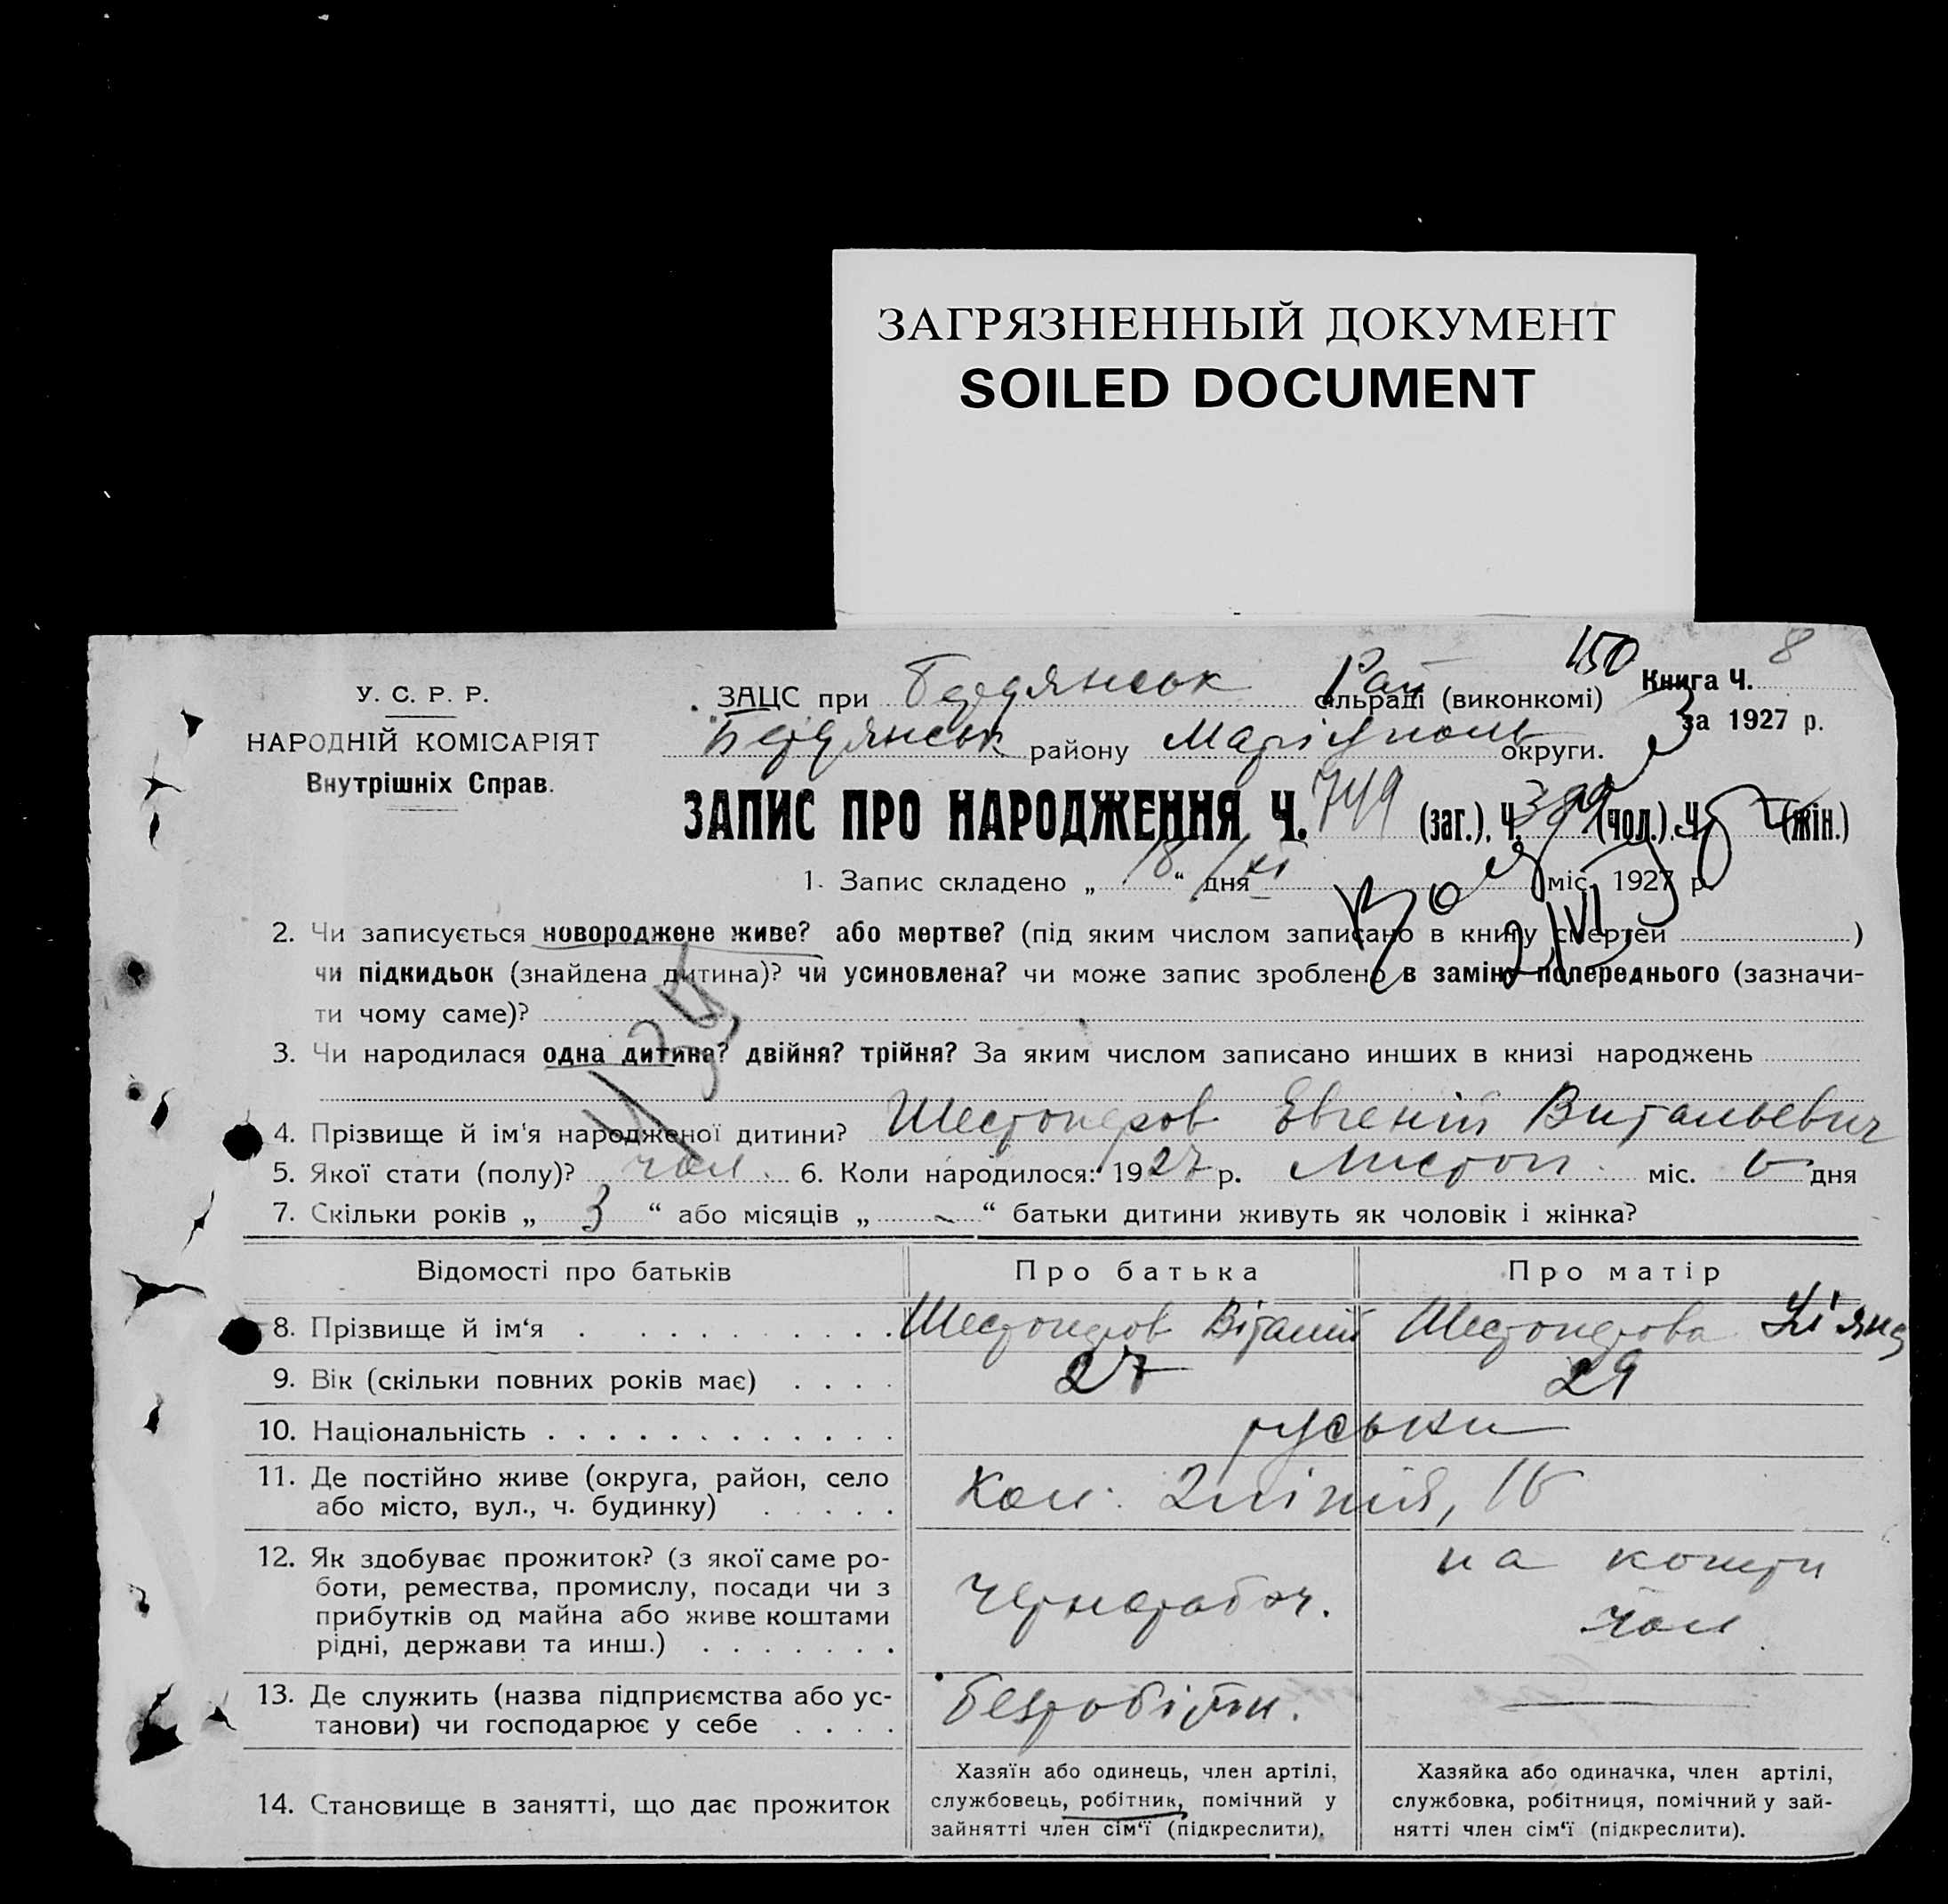 ЗАГРЯЗНЕННЫЙ ДОКУМЕНТ
SOILED DOCUMENT
150 Книга Ч. 8
У. С. Р. Р.
ЗАЦС при Бердянськ Рай сільраді (виконкомі)
за 1927 р.
НАРОДНІЙ КОМІСАРІЯТ
Бердянськ району Маріуполь округи.
Внутрішніх Справ.
ЗАПИС ПРО НАРОДЖЕННЯ Ч. 749 (заг.), Ч. 399 (чол.), Ч. (жін.)
1. Запис складено „ 18 “ дня XI міс. 1927 р.
2. Чи записується новороджене живе? або мертве? (під яким числом записано в книгу смертей )
чи підкидьок (знайдена дитина)? чи усиновлена? чи може запис зроблено в заміну попереднього (зазначи-
ти чому саме)?
3. Чи народилася одна дитина? двійня? трійня? За яким числом записано инших в книзі народжень
4. Прізвище й ім'я народженої дитини? Шестоперов Евгеній Витальевич
5. Якої стати (полу)? чол. 6. Коли народилося: 1927 р. Листоп. міс. 6 дня
7. Скільки років „ 3 “ або місяців „ - “ батьки дитини живуть як чоловік і жінка?
Відомості про батьків
Про батька
Про матір
8. Прізвище й ім‘я Шестоперов Віталий Шестоперова
9. Вік (скільки повних років має) 27 29
10. Національність руськи
11. Де постійно живе (округа, район, село
або місто, вул., ч. будинку)
Кол. 2 лінія, 16
12. Як здобуває прожиток? (з якої саме ро-
боти, ремества, промислу, посади чи з
прибутків од майна або живе коштами
рідні, держави та инш.)
чернорабоч.
на кошти
чол
13. Де служить (назва підприємства або ус-
танови) чи господарює у себе
безробітн.
14. Становище в занятті, що дає прожиток
Хазяїн або одинець, член артілі,
службовець, робітник, помічний у
зайнятті член сім‘ї (підкреслити).
Хазяйка або одиначка, член артілі,
службовка, робітниця, помічний у зай-
нятті член сім‘ї (підкреслити).